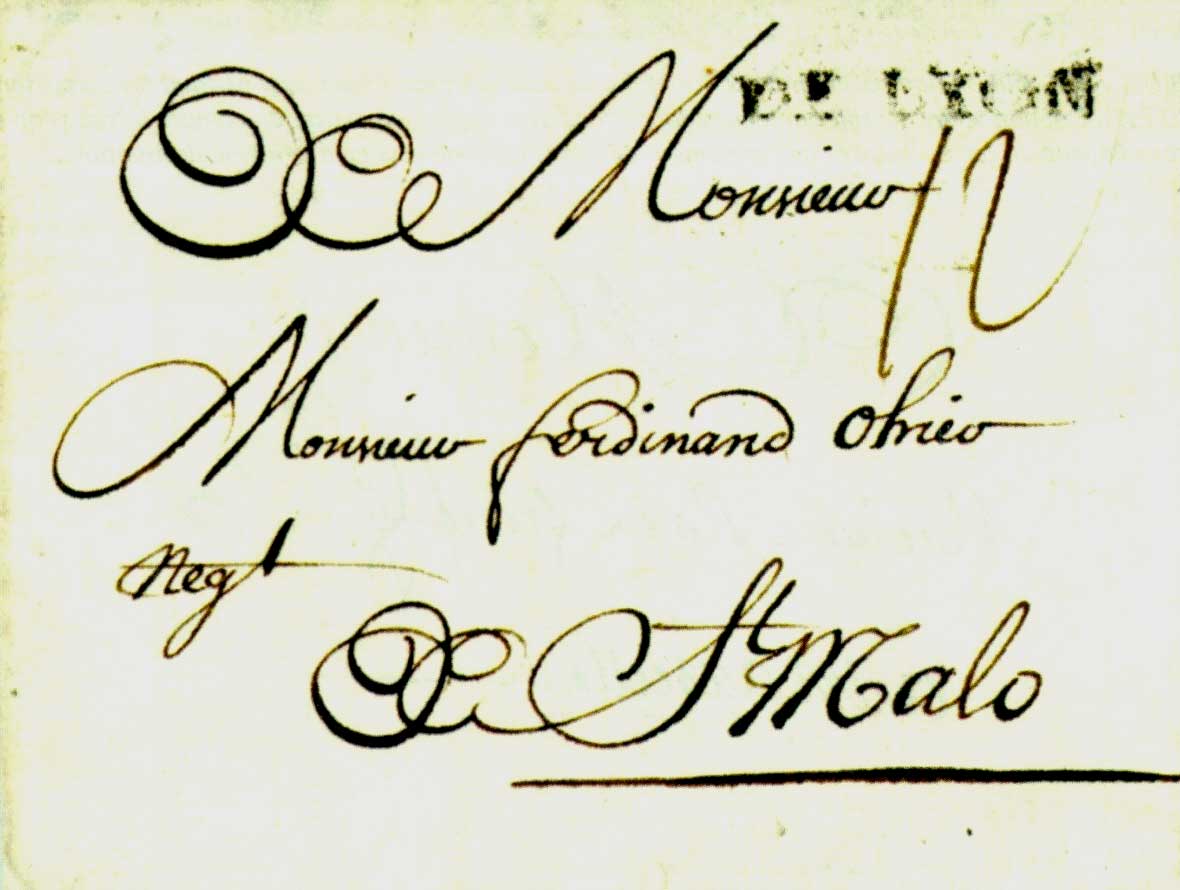 DE LYON
A Monsieur 12
Monsieur ferdinand
Negt
A St Malo